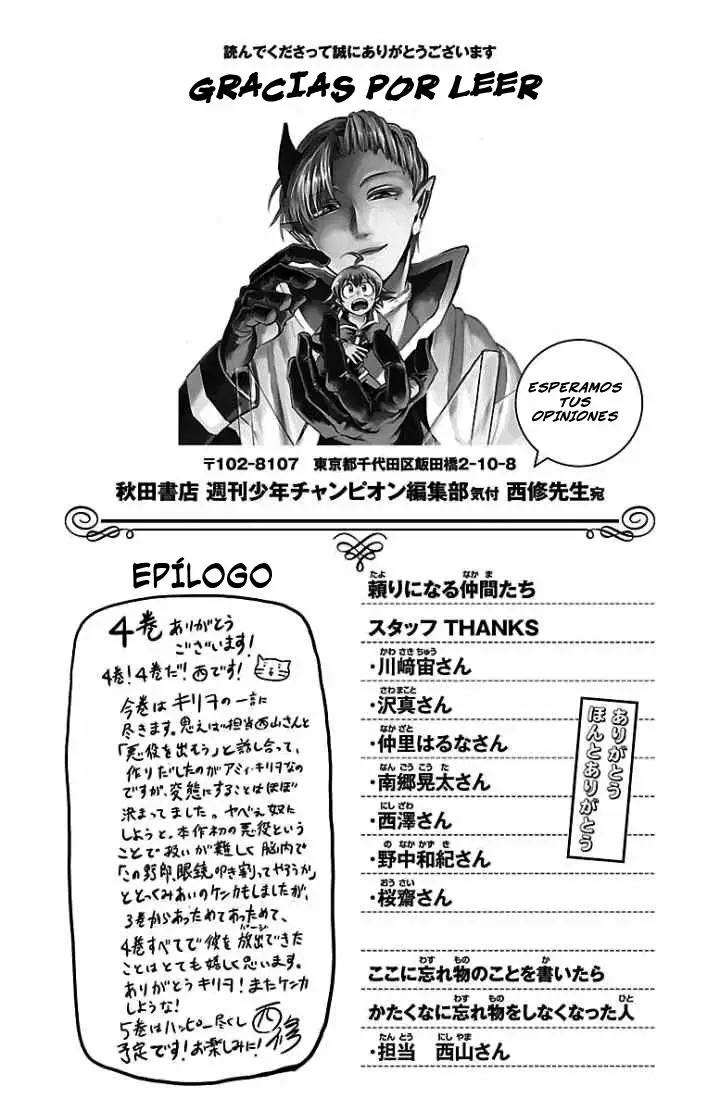 読んでくださって誠にありがとうございます
GRACIAS POR LEER
ESPERAMOS
TUS
OPINIONES
〒102-8107 東京都千代田区飯田橋2-10-8
秋田書店 週刊少年チャンピオン編集部気付 西修先生宛
EPÍLOGO
4巻ありがとう
ございます!
4巻!4巻だ!西です!
今巻はキリヲの一言に
尽きます。思えば担当西山さんと
「悪役を出もう」と話し合って、
作りだしたのがアミィ・キリヲなの
ですが、変態にすることはほぼ
決まってました。ヤベェ奴に
しようと。本作初の悪役という
ことで扱いが難しく脳内で
「この野郎、眼鏡叩き割ってやろうか」
ととっくみあいのケンカもしましたが、
3巻からあっためてあっためて、
4巻すべてで彼を放出できた
パージ
ことはとても嬉しく思います。
ありがとうキリヲ!またケンカ
しような!
5巻はハッピー尽くし
予定です!お楽しみに! 西修
たよ なかま
頼りになる仲間たち
スタッフ THANKS
かわさきちゅう
・川﨑宙さん
さわまこと
・沢真さん
なかざと
・仲里はるなさん
なんごうこうた
・南郷晃太さん
にしざわ
・西澤さん
のなかかずき
・野中和紀さん
おうさい
・桜齋さん
ありがとう
ほんとありがとう
わす もの か
ここに忘れ物のことを書いたら
わす もの ひと
かたくなに忘れ物をしなくなった人
たんとう にしやま
・担当 西山さん